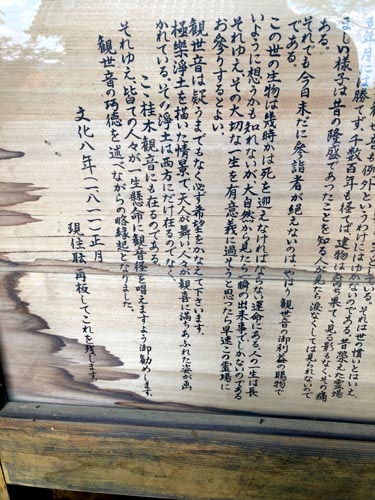 観世音も例外というわけにはゆかないのである。昔栄えた霊場
年月には勝てず、千数百年も経てば、建物は荒れ果て、見る影もなく、その痛
ましい様子は昔の隆盛であったことを知る人が見たら涙なくしては見られないので
ある。
それでも今日未だに参詣者が絶えないのは、やはり観世音の御利益の賜物で
である。
この世の生物は幾時かは死を迎えなければならない運命にある。人の一生は長
いように想うかも知れないが、大自然から見たら一瞬の出来事でしかないのである
それゆえ、その大切な一生を有意義に過そうと思ったら早速この霊場に
お参りするとよい。
観世音は疑うまでもなく必ず希望をかなえて下さいます。
極楽浄土を描いた情景で、天人が舞い、人々が観喜に満ちあふれた姿が画
かれている。その浄土は西方にだけ在るのでなく、
こゝ桂木観音にも在るのである。
それゆえ、皆ての人々が一生懸命に観音経を唱えますよう御勧めします。
観世音の功徳を述べながらの略縁起となりました。
文化八年(一八一一)正月
現住 再板してこれを残します。